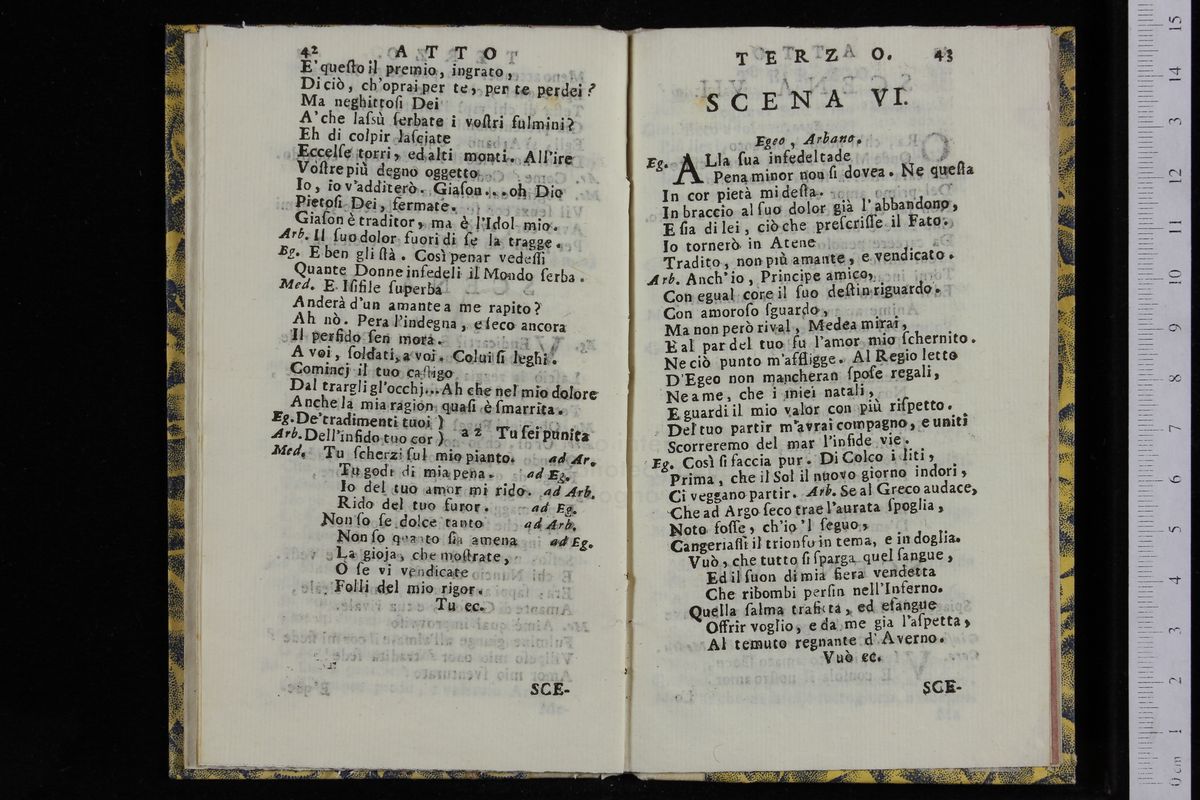 42 ATTO
E' questo il premio, ingrato,
Di ciò, ch'oprai per te, per te perdei?
Ma neghittosi Dei
A' che lassù serbate i vostri fulmini?
Eh di colpir lasciate
Eccelse torri, ed alti monti. All'ire
Vostre più degno oggetto
Io, io v'additerò. Giason... oh Dio
Pietosi Dei, fermate.
Giason è traditor, ma è l'Idol mio.
Arb. Il suo dolor fuori di se la tragge.
Eg. E ben gli stà. Così penar vedessi
Quante Donne infedeli il Mondo serba.
Med. E Isifile superba
Anderà d'un amante a me rapito?
Ah nò. Pera l'indegna, e seco ancora
Il perfido sen mora.
A voi, soldati, a voi. Colui si leghi.
Cominci il tuo castigo
Dal trargli gl'occhj... Ah che nel mio dolore
Anche la mia ragion quasi è smarrita.
Eg. De' tradimenti tuoi )
Arb. Dell'infido tuo cor ) a 2 Tu sei punita
Med. Tu scherzi sul mio pianto. ad Ar.
Tu godi di mia pena. ad Eg.
Io del tuo amor mi rido. ad Arb.
Rido del tuo furor. ad Eg.
Non so se dolce tanto ad Arb.
Non so quanto sia amena ad Eg.
La gioja, che mostrate,
O se vi vendicate
Folli del mio rigor.
Tu ec.
SCE-
TERZO. 43
SCENA VI.
Egeo, Arbano.
Eg. ALla sua infedeltade
Pena minor non si dovea. Ne questa
In cor pietà mi desta.
In braccio al suo dolor già l'abbandono,
E sia di lei, ciò che prescrisse il Fato.
Io tornerò in Atene
Tradito, non più amante, e vendicato.
Arb. Anch'io, Principe amico,
Con egual core il suo destin riguardo.
Con amoroso sguardo,
Ma non però rival, Medea mirai,
E al par del tuo fu l'amor mio schernito.
Ne ciò punto m'affligge. Al Regio letto
D'Egeo non mancheran spose regali,
Ne a me, che i miei natali,
E guardi il mio valor con più rispetto.
Del tuo partir m'avrai compagno, e uniti
Scorreremo del mar l'infide vie.
Eg. Così si faccia pur. Di Colco i liti,
Prima, che il Sol il nuovo giorno indori,
Ci veggano partir. Arb. Se al Greco audace,
Che ad Argo seco trae l'aurata spoglia,
Noto fosse, ch'io 'l seguo,
Cangeriasi il trionfo in tema, e in doglia.
Vuò, che tutto si sparga quel sangue,
Ed il suon di mia fiera vendetta
Che ribombi persin nell'Inferno.
Quella salma trafitta, ed esangue
Offrir voglio, e da me gia l'aspetta,
Al temuto regnante d'Averno.
Vuò ec.
SCE-